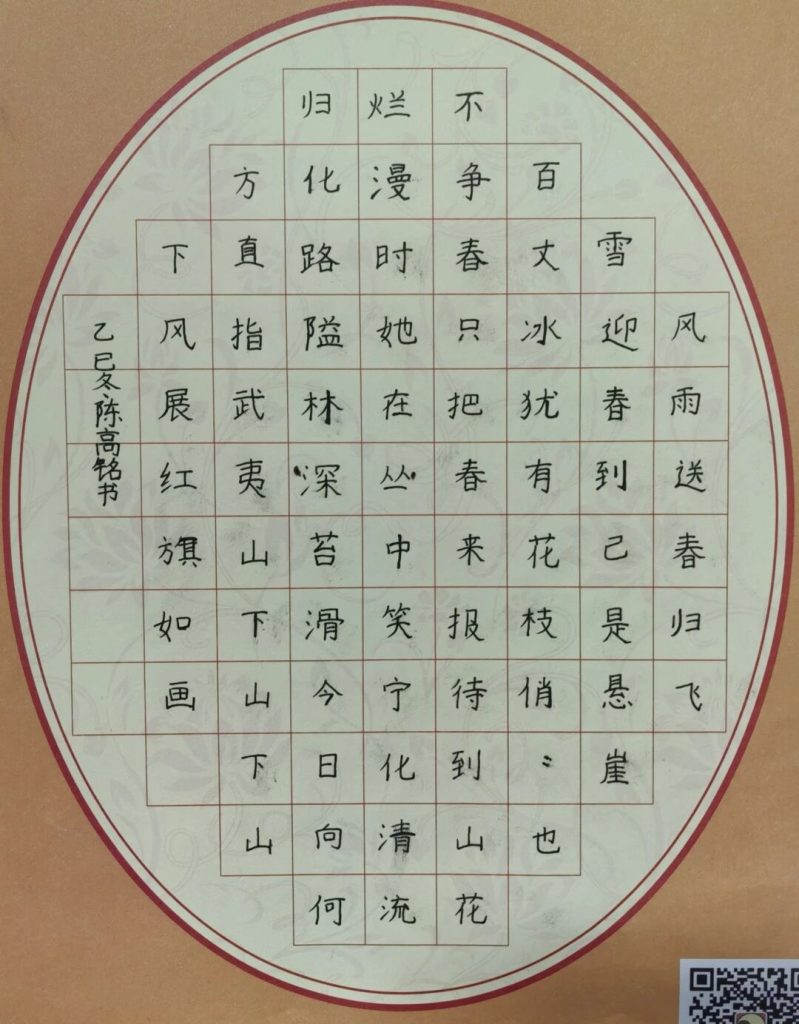 风雨送春归飞
雪迎春到己是悬崖
百丈冰犹有花枝俏〻也
不争春只把春来报待到山花
烂漫时她在丛中笑宁化清流
归化路隘林深苔滑今日向何
方直指武夷山下山下山
下风展红旗如画
乙巳冬陈高铭书